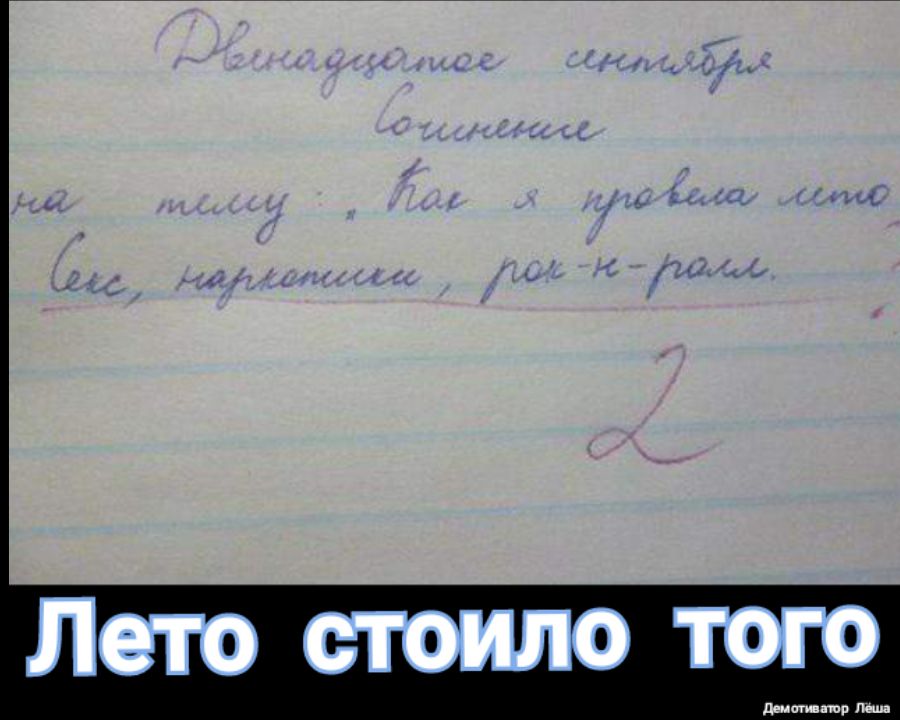 Двенадцатое сентября
Сочинение
на тему: „Как я провела лето
Секс, наркотики, рок-н-ролл.
2
Лето стоило того
Демотиватор Лёша